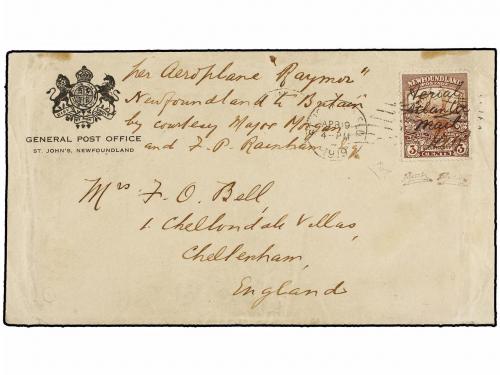 per Aeroplane "Raymor"
Newfoundland to Britain"
by courtesy Major Morgan
and F. P. Raynham Esq
GENERAL POST OFFICE
ST. JOHN'S, NEWFOUNDLAND
APR 19
4-PM
1919
NEWFOUNDLAND
Aerial
Atlantic
Mail
3 CENTS 3
Mrs F. O. Bell,
1. Chellondale Villas,
Cheltenham,
England